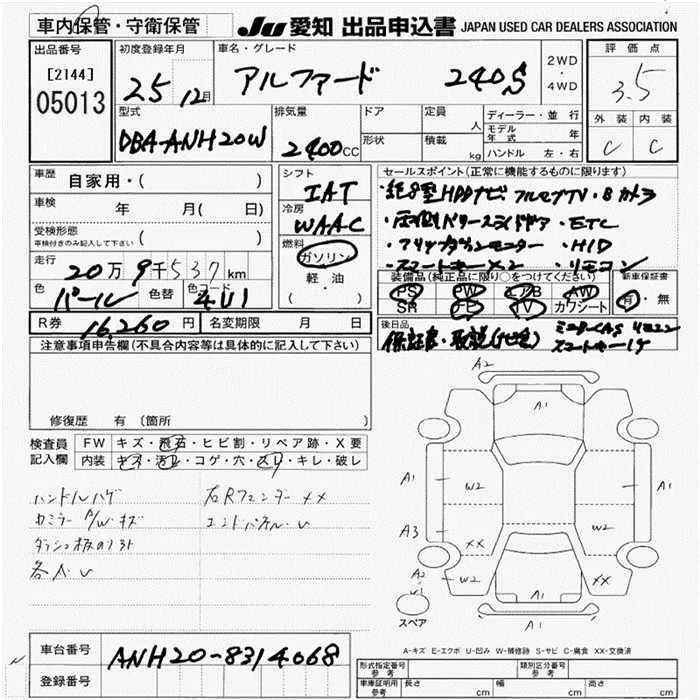 車内保管・守衛保管 JU 愛知 出品申込書 JAPAN USED CAR DEALERS ASSOCIATION
出品番号 [2144] 05013
初度登録年月 25 12月
車名・グレード アルファード 240S
2WD ・ 4WD
評価点 3.5
外装 内装
C C
型式 DBA-ANH20W
排気量 2400CC
ドア 形状
定員 人
積載 kg
ディーラー・並行
モデル年式 年
ハンドル 左・右
車歴 自家用・( )
車検 年 月( 日)
受検形態 車検付きのみ記入して下さい ( )
走行 20万9千537km
色 パール 色替 色コード 4U1
R券 16,260円 名変期限 月 日
シフト IAT
冷房 WAAC
燃料 ガソリン 軽・油
セールスポイント(正常に機能するものに限ります)
・純8型HDDナビ・フルセグTV・Bカメラ
・両側パワースライドドア・ETC
・フリップダウンモニター・HID
・スマートキー×2・リモコン
装備品(純正品に限り○をつけてください) 新車保証書
PS PW エアB AW 有・無
SR ナビ TV カワシート
後日品 保証書・取説
スマートキー
注意事項申告欄(不具合内容等は具体的に記入して下さい)
修復歴 有(箇所
検査員記入欄 FW キズ・飛石・ヒビ割・リペア跡・X要
内装 キズ・汚れ・コゲ・穴・スレ・キレ・破れ
ハンドルハゲ 右Rフェンダー XX
カミラー A/W キズ エンドパネル U
各人U
A2
A1
A1 W2 W2 A1
A3 XX
A2 U1 W2 XX
A1 A1
スペア
A-キズ E-エクボ U-凹み W-補修跡 S-サビ C-腐食 XX-交換済
車台番号 ANH20-8314068
登録番号
形式指定番号 参考 類別区分番号 参考
車庫証明用 参考 長さ cm 幅 cm 高さ cm